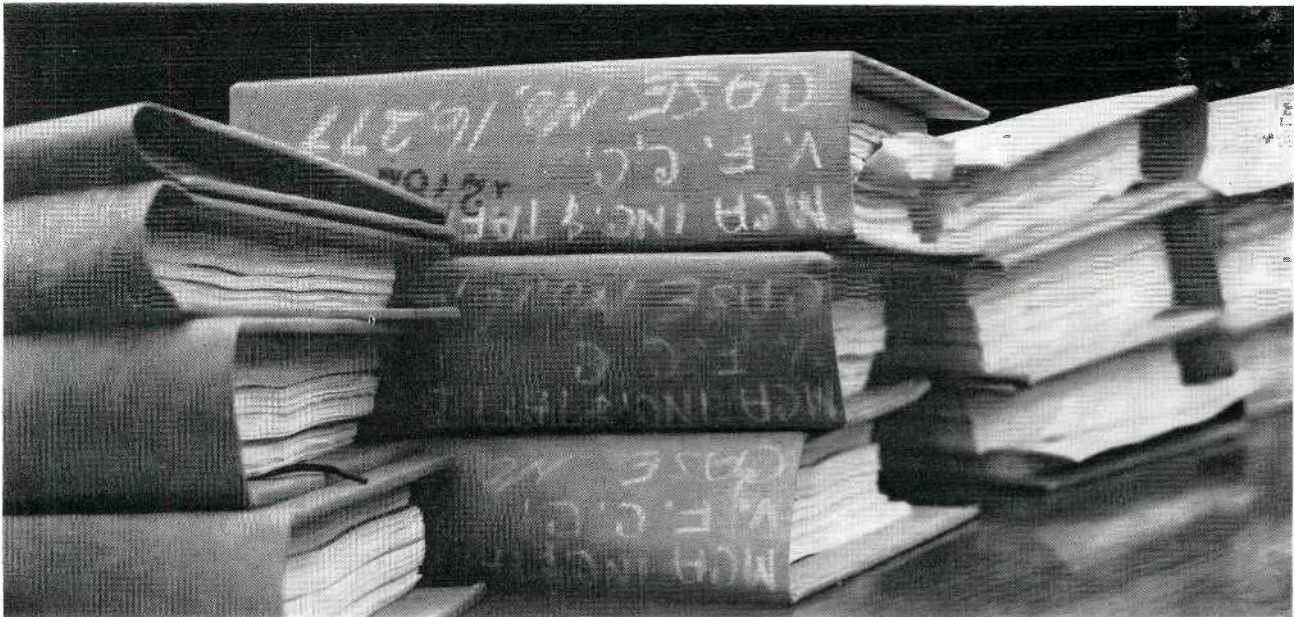 MCA INC. & TAF
V. F.C.C.
CASE NO. 16,277
MCA INC. & TAFT
V. F.C.C
CASE NO.
MCA INC & T
V. F.C.C.
CASE NO